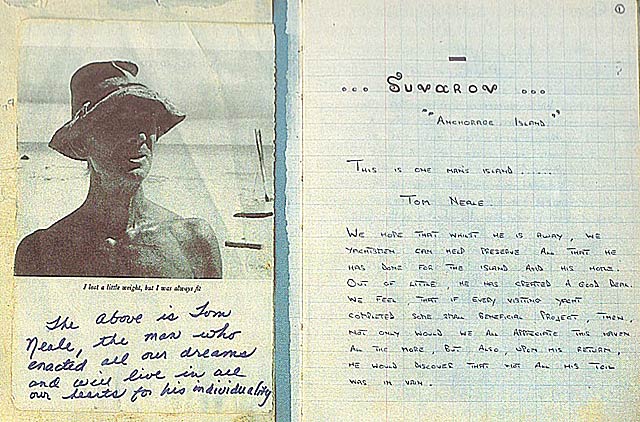 I lost a little weight, but I was always fit
The above is Tom
Neale, the man who
enacted all our dreams
and will live in all
our hearts for his individuality
1
... SUVAROV ...
"ANCHORAGE ISLAND"
THIS IS ONE MAN'S ISLAND ......
TOM NEALE.
WE HOPE THAT WHILST HE IS AWAY, WE
YACHTSMEN CAN HELP PRESERVE ALL THAT HE
HAS DONE FOR THE ISLAND AND HIS HOME.
OUT OF LITTLE, HE HAS CREATED A GOOD DEAL.
WE FEEL THAT IF EVERY VISITING YACHT
COMPLETED SOME SMALL BENEFICIAL PROJECT, THEN,
NOT ONLY WOULD WE ALL APPRECIATE THIS HAVEN
ALL THE MORE, BUT ALSO, UPON HIS RETURN,
HE WOULD DISCOVER THAT NOT ALL HIS TOIL
WAS IN VAIN.